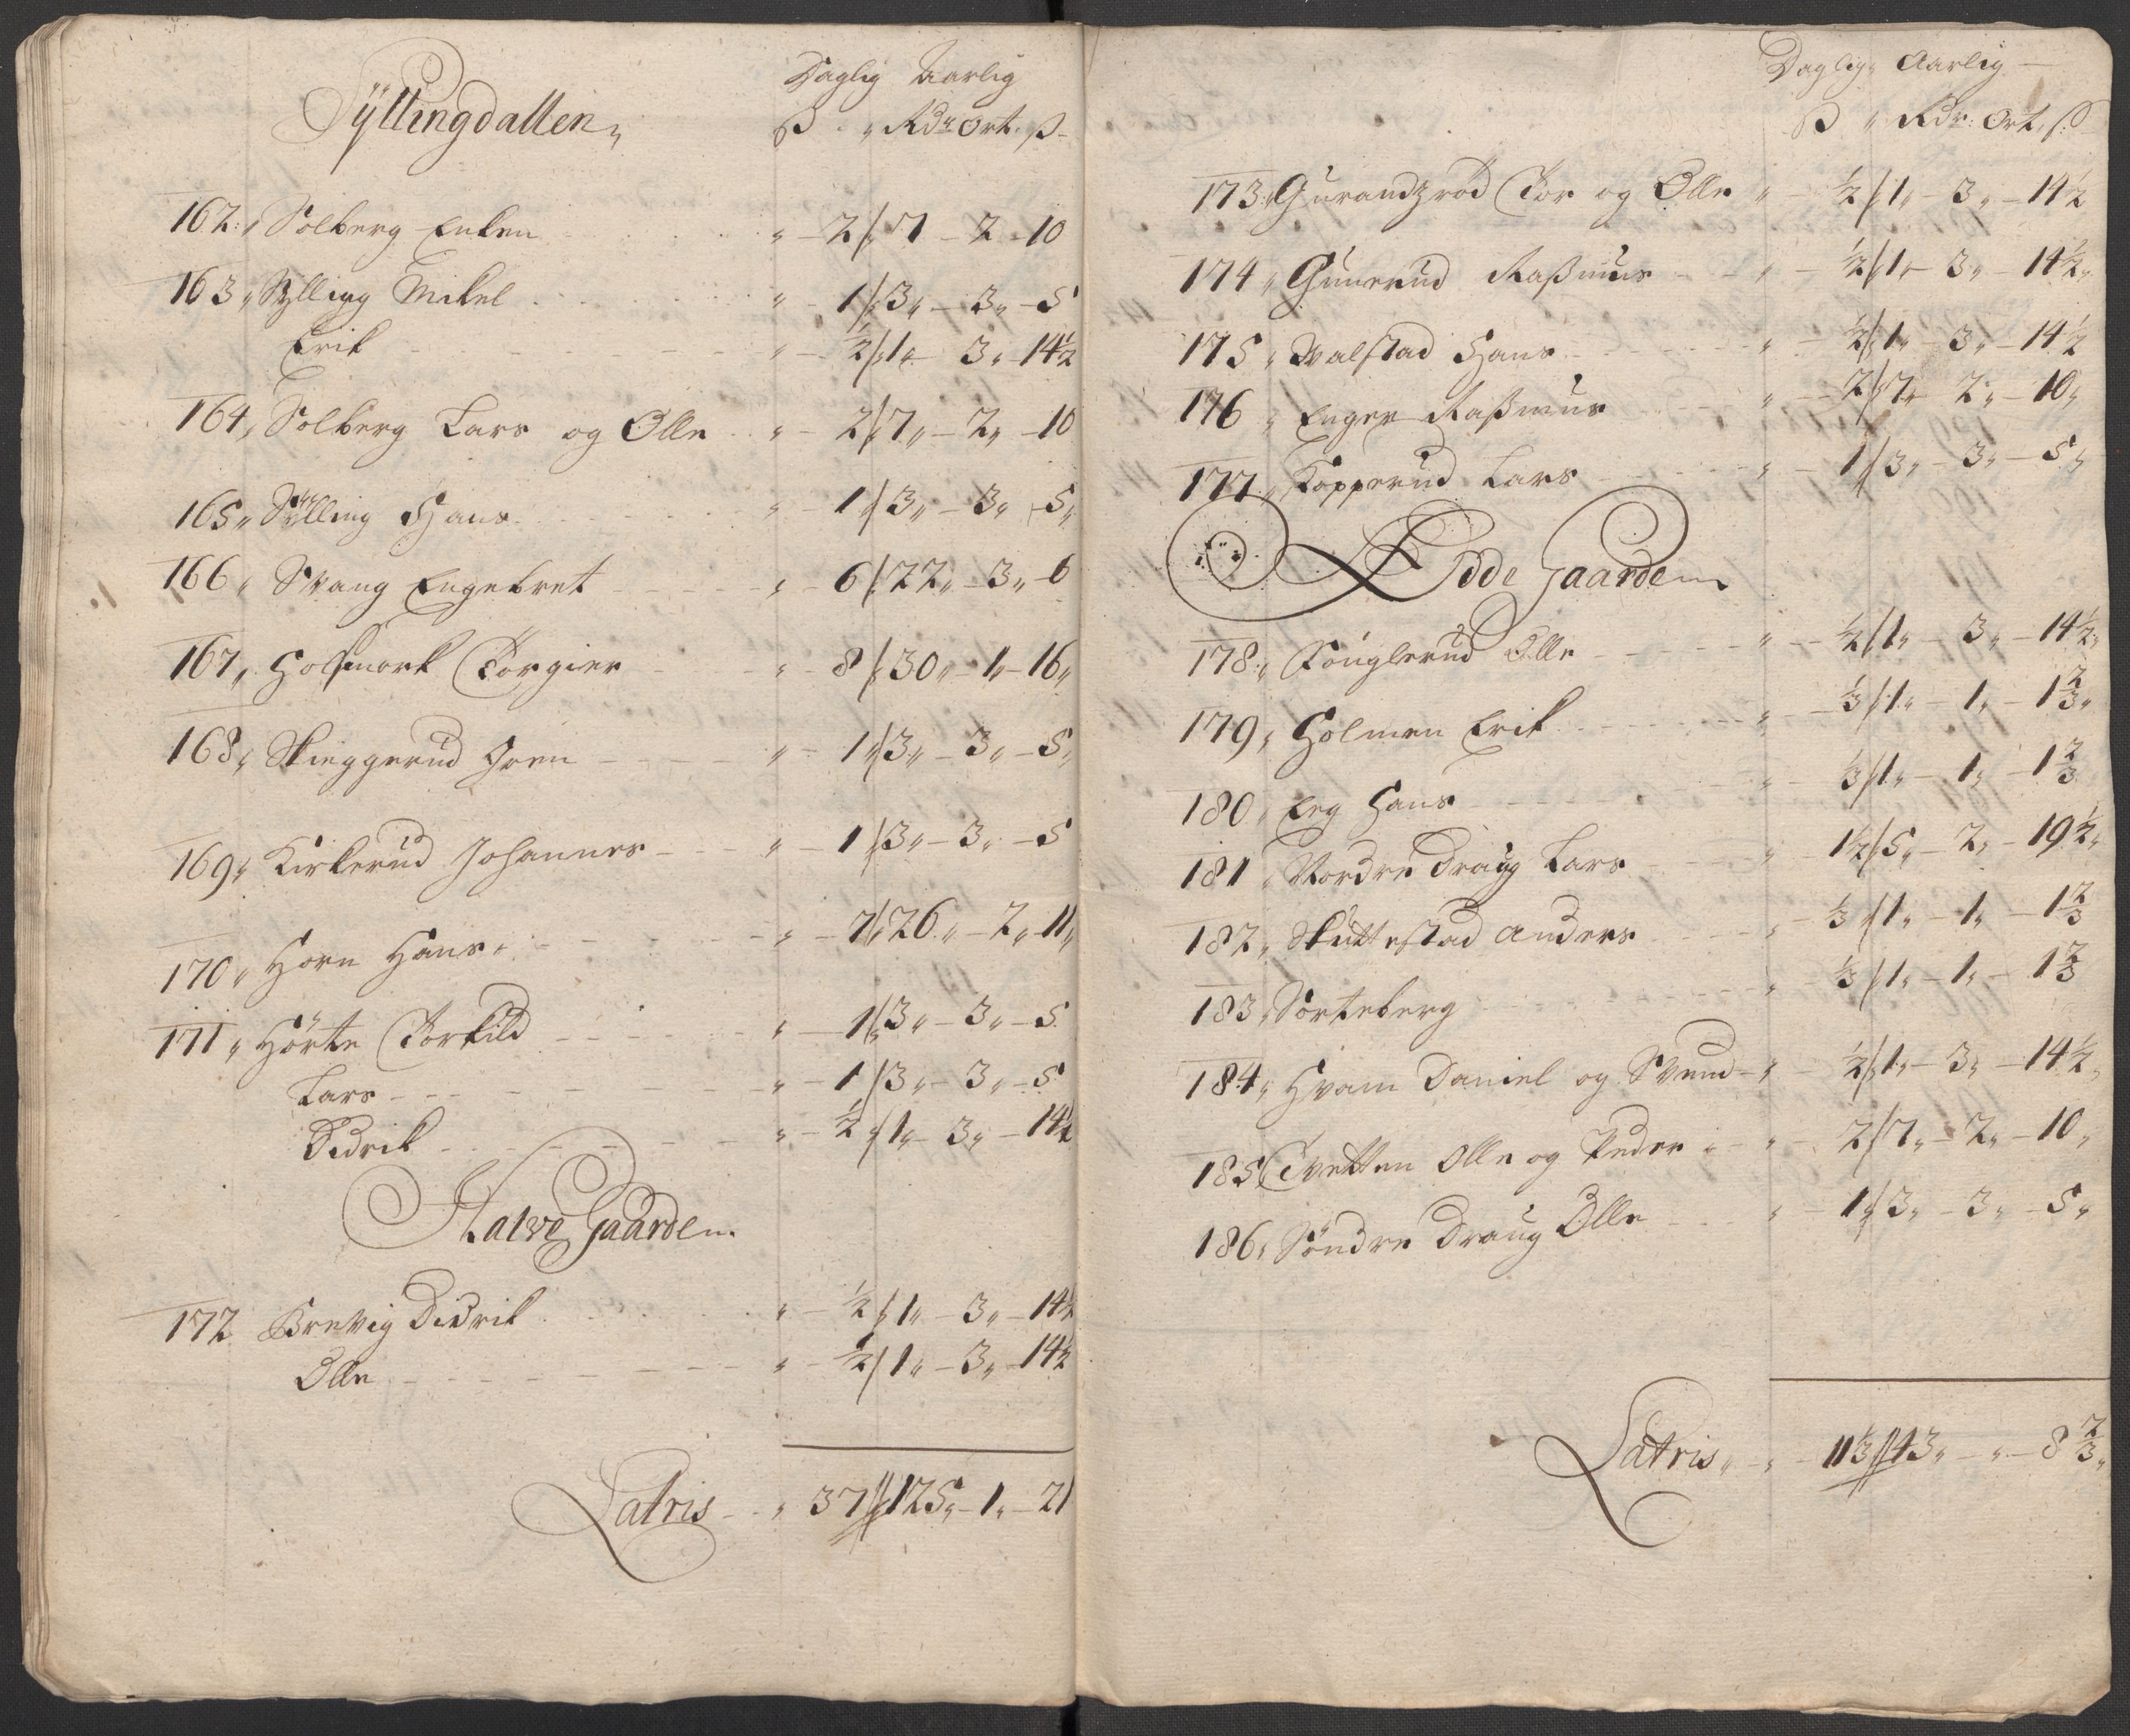 Daglig Aarlig
Syllingdallen„
ß „ Rdr Ort. ß
162„ Solberg Enken „ - 2 // 7 - 2 - 10
163„ Sylling Mikel „ - 1 // 3„ - 3„ - 5
Erik „ - ½ // 1„ - 3„ - 14½
164„ Solberg Lars og Olle „ - 2 // 7„ - 2„ - 10
165„ Sylling Hans „ - 1 // 3„ - 3„ - 5„
166„ Svang Engebret „ - 6 // 22„ - 3„ - 6
167„ Holsmark Torgier „ - 8 // 30„ - 1„ - 16„
168„ Skieggerud Joen „ - 1 // 3„ - 3„ - 5„
169„ Kirkerud Johannes „ - 1 // 3„ - 3„ - 5
170„ Horn Hans „ - 7 // 26„ - 2„ - 11„
171„ Hörte Torkild „ - 1 // 3„ - 3„ - 5
Lars „ - 1 // 3„ - 3„ - 5
Didrik „ - ½ // 1„ - 3„ - 14½
Halve Gaarden
172 Brevig Didrik „ - ½ // 1„ - 3„ - 14½
Olle „ - ½ // 1„ - 3„ - 14½
Latris „ 37 // 125„ - 1„ - 21
Daglig„ Aarlig
ß „ Rdr: Ort„ ß
173„ Gurandzröd Tor og Olle „ ½ // 1„ - 3„ - 14½
174„ Gunerud Raßmus „ - ½ // 1„ - 3„ - 14½„
175„ Valstad Hans „ - ½ // 1„ - 3„ - 14½
176„ Enger Raßmus „ - 2 // 7„ 2„ - 10„
177„ Kopperud Lars „ - 1 // 3„ - 3„ - 5„
Ödde Gaarden
178„ Fonglerud Olle „ - ½ // 1„ - 3„ - 14½„
179„ Holmen Erik „ - ⅓ // 1„ - 1„ - 1⅔„
180„ Eeg Hans „ - ⅓ // 1„ - 1„ - 1⅔
181„ Nordre Draug Lars „ - 1½ // 5„ - 2„ - 19½„
182„ Skuttestad Anders „ - ⅓ // 1„ - 1„ - 1⅔
183„ Sorteberg „ ⅓ // 1„ - 1„ - 1⅔
184„ Hvam Daniel og Svend „ - ½ // 1„ - 3„ - 14½„
185„ Tvetten Olle og Peder „ - 2 // 7„ - 2„ - 10„
186„ Söndre Draug Olle „ - 1 // 3„ - 3„ - 5„
Latris„ - „ - 11⅓ // 43„ - „ - 8⅔„